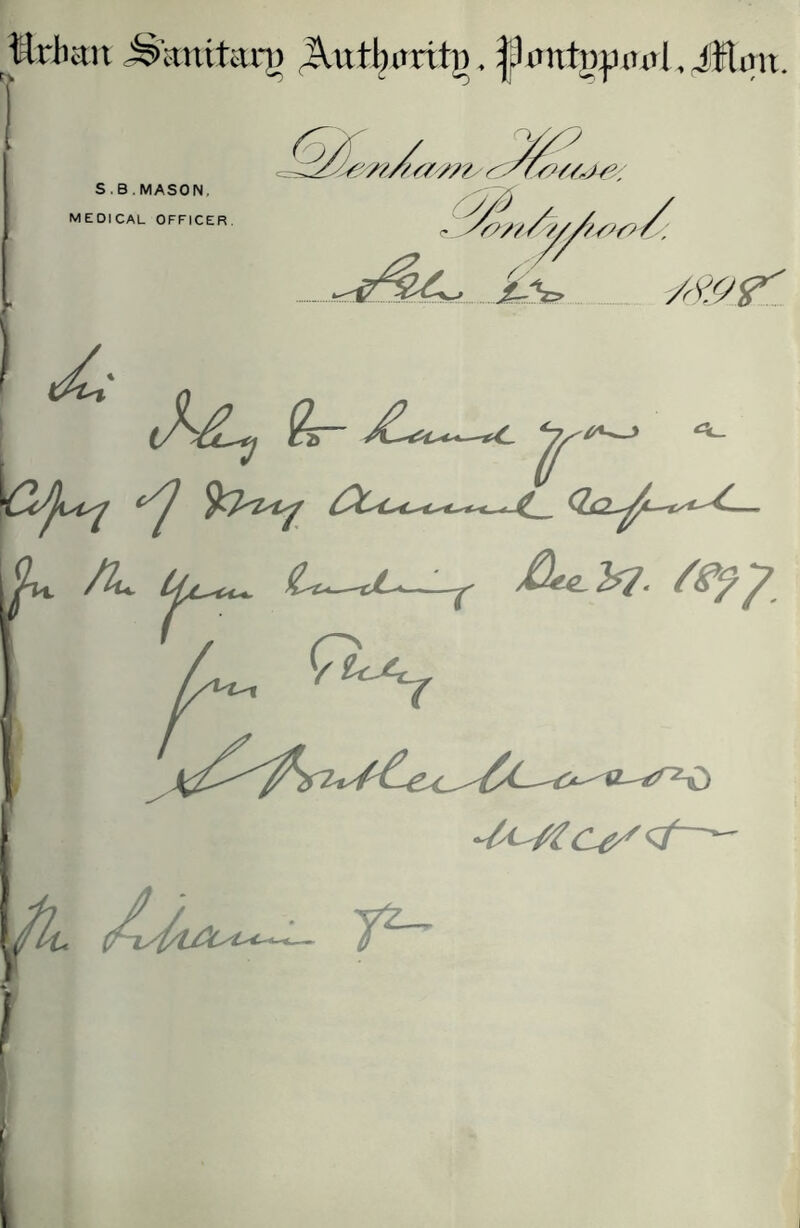 Urban Sanitary Authority, Pontypool, Mon.
S.B. MASON,
MEDICAL OFFICER.
Denham House,
Pontypool.
Feb. 1898
Sir
I beg to hand you a
Copy of my Annual Report
for the year ending Dec 31. 1897.
Yours truly
S Butler Mason
M.R.C.S